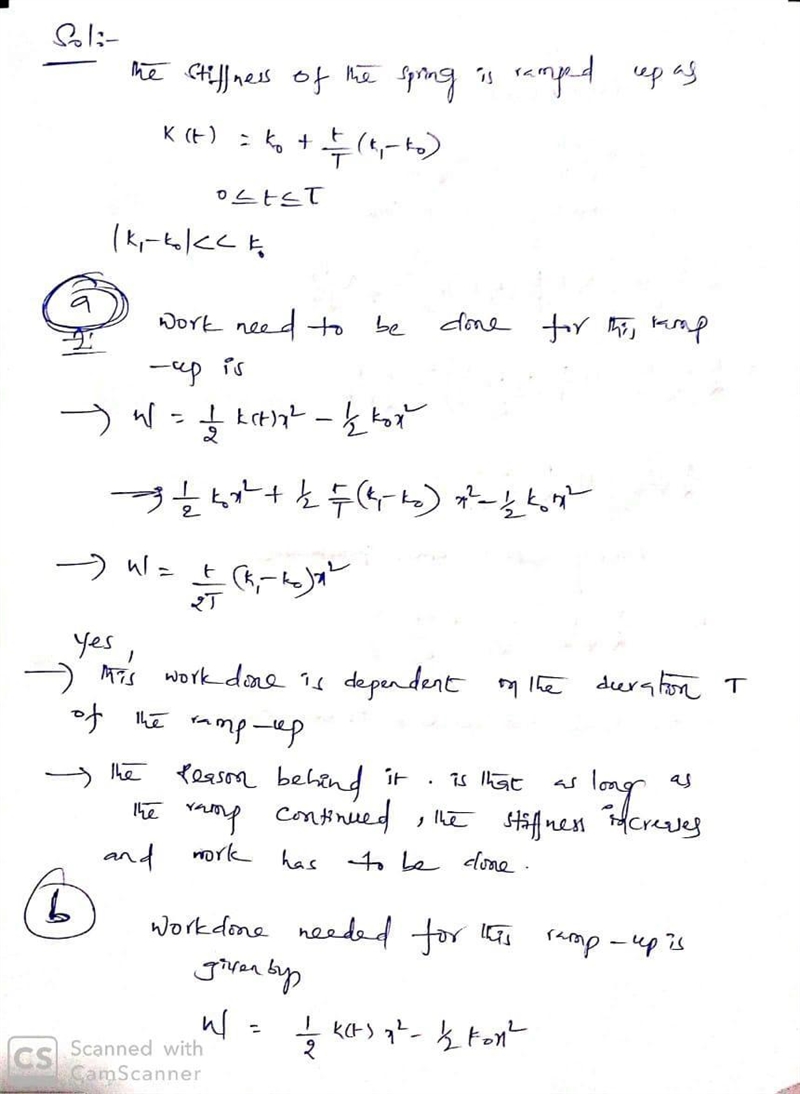 Sol:-
The stiffness of the spring is ramped up as
K(t) = k₀ + t/T (k₁-k₀)
0≤t≤T
|k₁-k₀|<< k₀
a
Work need to be done for this ramp
-up is
→ W = 1/2 k(t)x² - 1/2 k₀x²
→ 1/2 k₀x² + 1/2 t/T (k₁-k₀) x² - 1/2 k₀x²
→ W = t/2T (k₁-k₀)x²
yes,
→ This work done is dependent on the duration T
of the ramp-up
→ the reason behind it. is that as long as
the ramp continued, the stiffness increases
and work has to be done.
b
Workdone needed for this ramp-up is
given by
W = 1/2 k(t) x² - 1/2 k₀x²
CS Scanned with
CamScanner